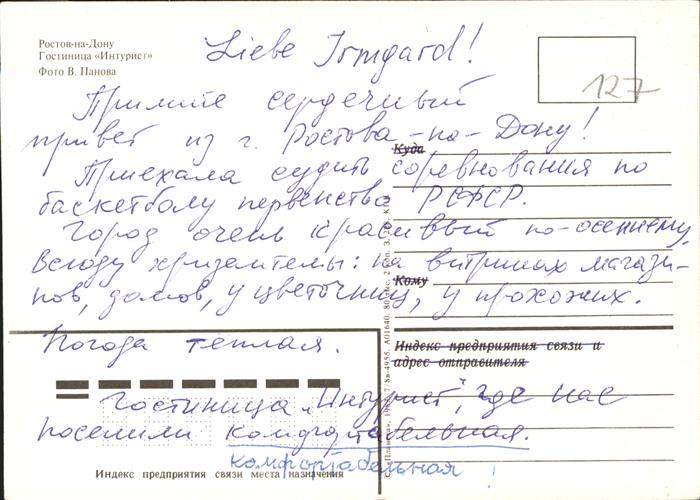 Ростов-на-Дону
Гостиница «Интурист»
Фото В. Панова
Liebe Irmgard!
127
Примите сердечный
привет из г. Ростова-на-Дону!
Куда
Приехала судить соревнования по
баскетболу первенства РСФСР.
Город очень красивый по-осеннему,
всюду хризантемы: на витринах магази-
Кому
нов, домов, у цветочниц, у прохожих.
Погода теплая.
Индекс предприятия связи и
адрес отправителя
Гостиница „Интурист", где нас
поселили комфортабельная.
комфортабельная !
Индекс предприятия связи места назначения